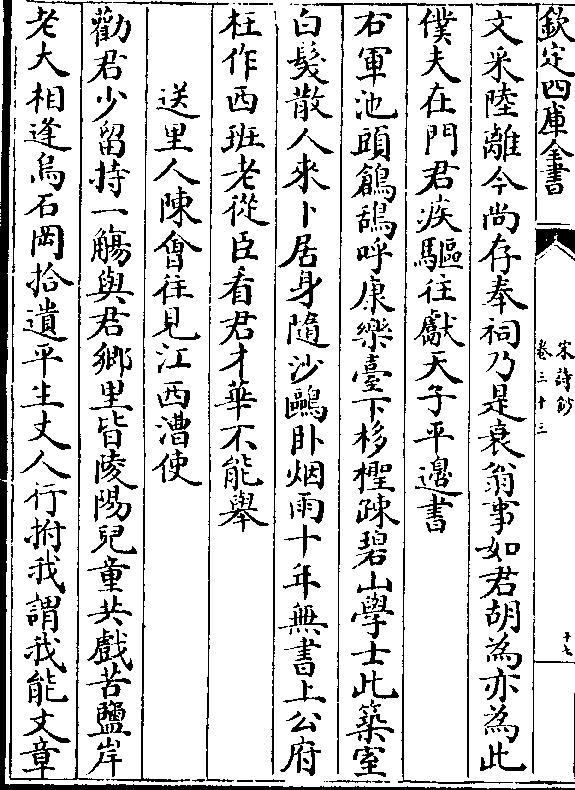 欽定四庫全書
宋詩鈔
卷三十三
十七
文采陸離今尚存奉祠乃是衰翁事如君胡為亦為此
僕夫在門君疾驅往獻天子平邊書
右軍池頭鶬鴰呼康樂臺下杉檉疎碧山學士此築室
白髮散人來卜居身隨沙鷗卧烟雨十年無書上公府
枉作西班老從臣看君才華不能舉
送里人陳會往見江西漕使
勸君少留持一觴與君鄉里皆陵陽兒童共戲苦鹽岸
老大相逢烏石岡拾遺平生丈人行拊我謂我能文章